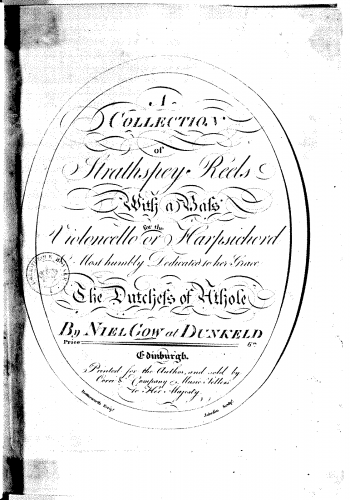 A
COLLECTION
of
Strathspey Reels
With a Bass
for the
Violoncello or Harpsichord
Most humbly Dedicated to her Grace
The Dutchess of Athole
By NIEL GOW at DUNKELD
Price 6s.
Edinburgh.
Printed for the Author, and sold by
Corri & Company Music Sellers
to Her Majesty
Johnson Sculpt.